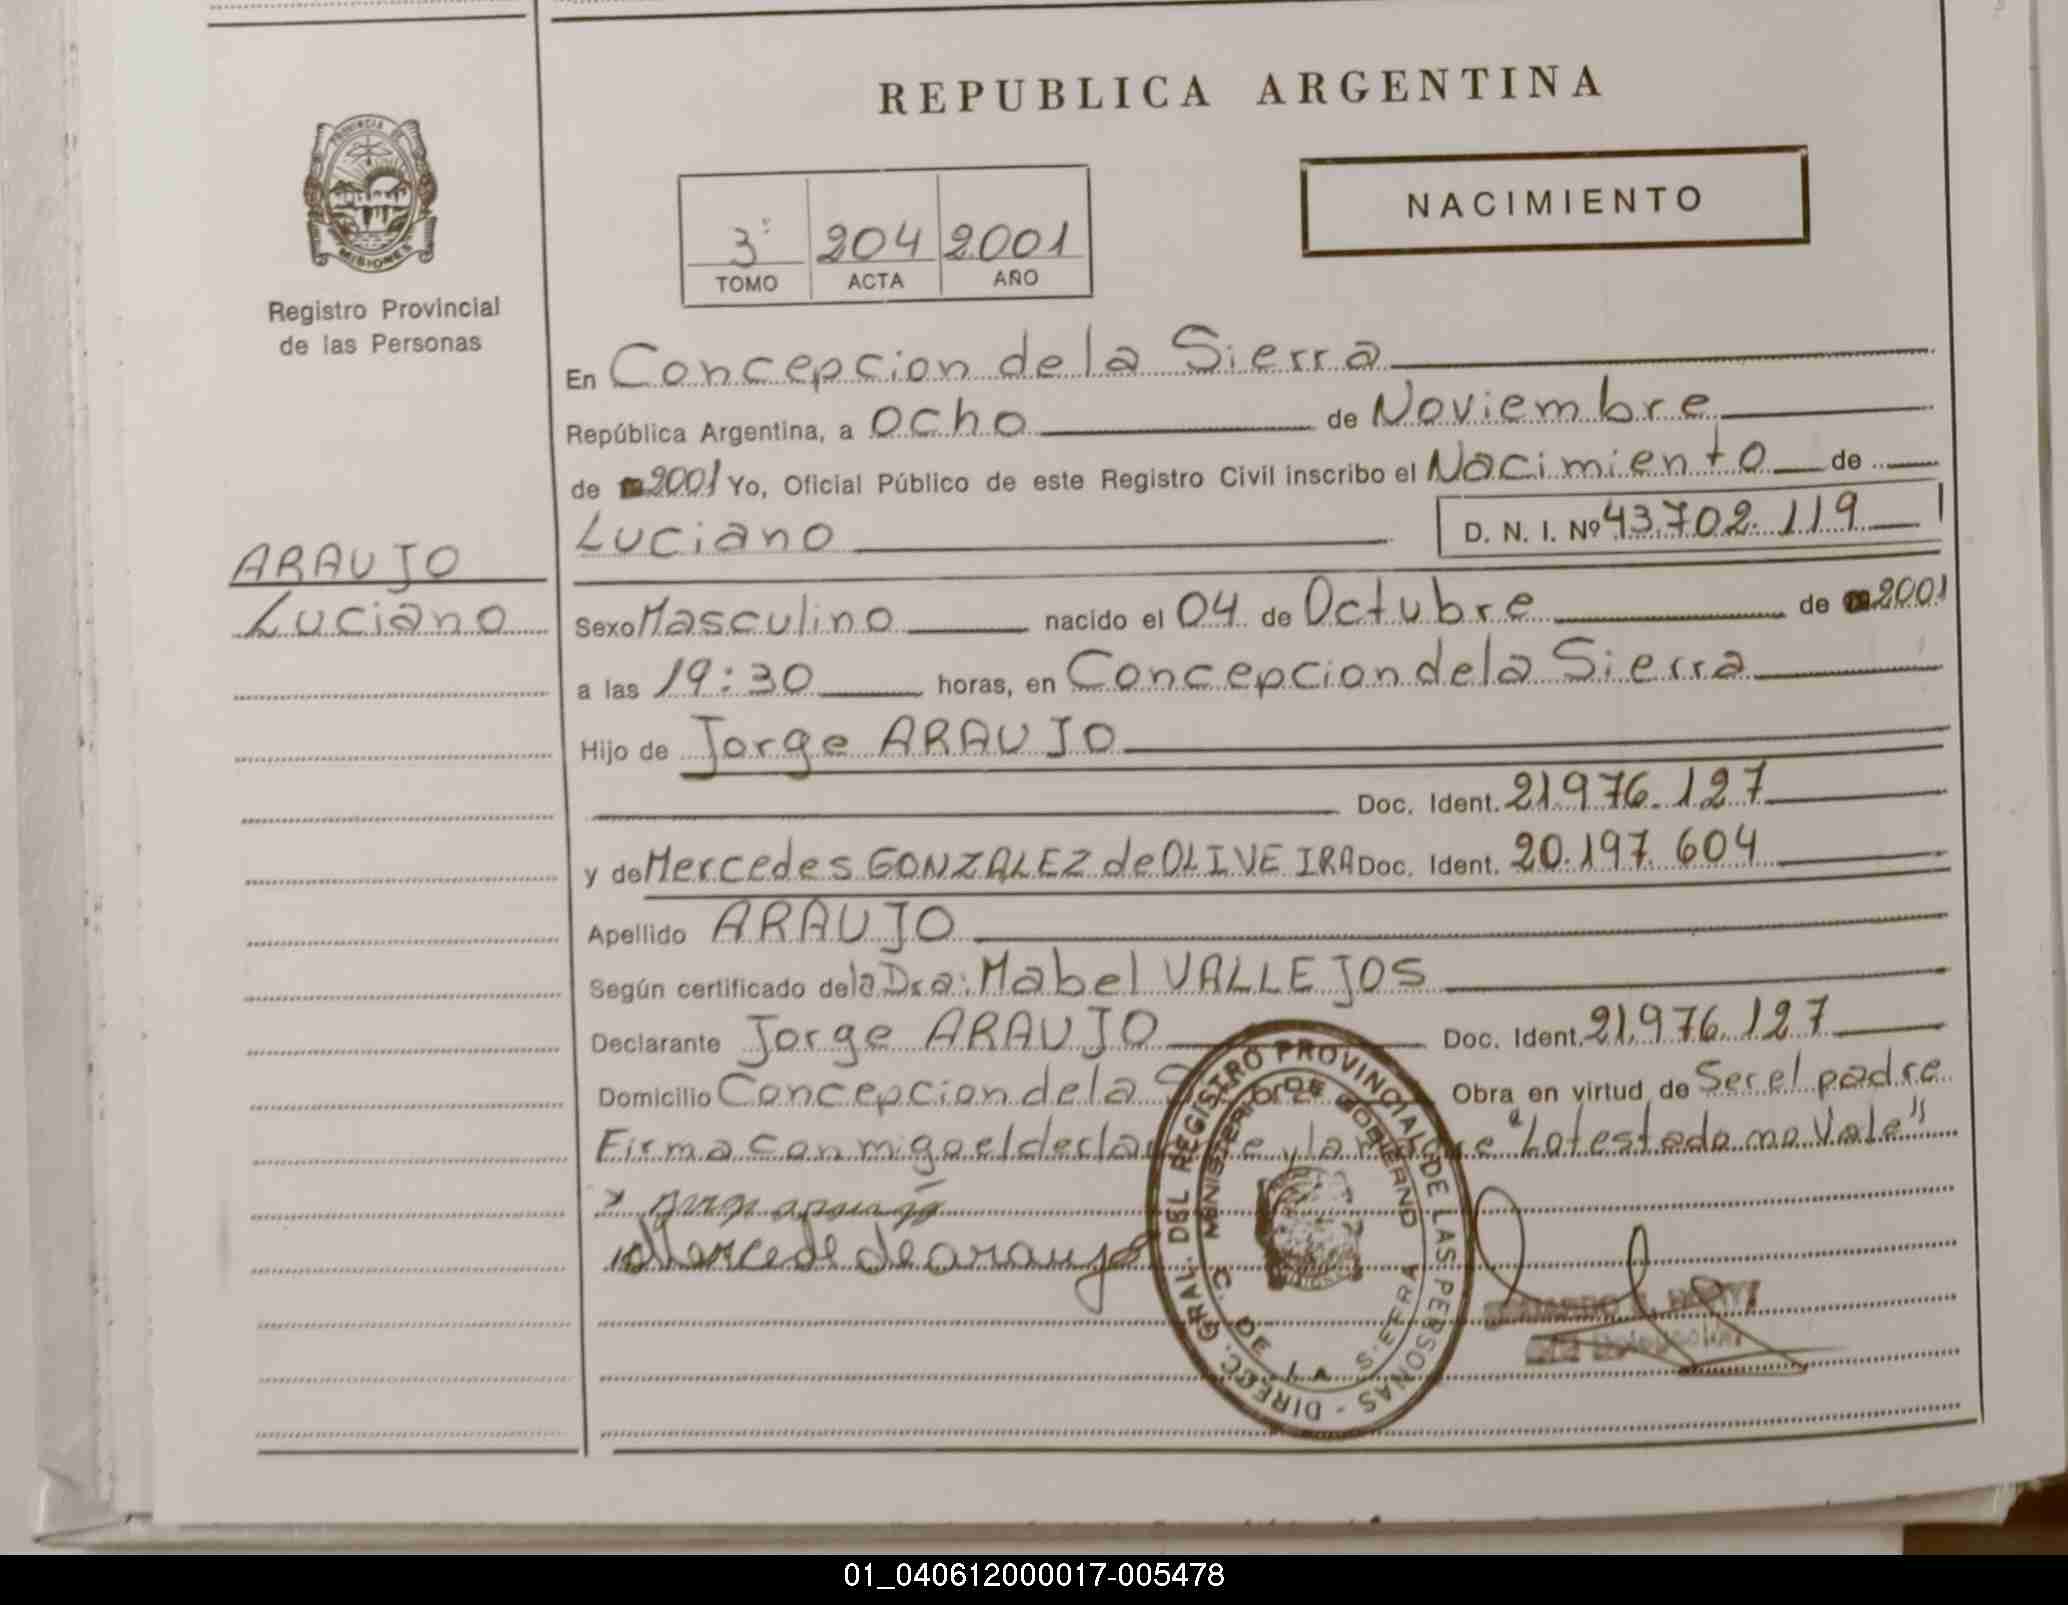 REPUBLICA ARGENTINA
NACIMIENTO
3º 204 2001
TOMO ACTA AÑO
PROVINCIA DE
MISIONES
Registro Provincial
de las Personas
En Concepcion de la Sierra
República Argentina, a ocho de Noviembre
de 2001 Yo, Oficial Público de este Registro Civil inscribo el Nacimiento de
Luciano D. N. I. Nº 43.702.119
ARAUJO
Luciano
Sexo Masculino nacido el 04 de Octubre de 2001
a las 19:30 horas, en Concepcion de la Sierra
Hijo de Jorge ARAUJO
Doc. Ident. 21976.127
y de Mercedes GONZALEZ de OLIVEIRA Doc. Ident. 20.197.604
Apellido ARAUJO
Según certificado de la Dra: Mabel VALLEJOS
Declarante Jorge ARAUJO Doc. Ident. 21.976.127
Domicilio Concepcion de la Obra en virtud de Ser el padre
Firma conmigo el y la "Lo testado no Vale"
Mercede de araujo
DIREC. GRAL. DEL REGISTRO PROVINCIAL DE LAS PERSONAS -
MINISTERIO DE GOBIERNO
C. DE LA SIERRA
01_040612000017-005478